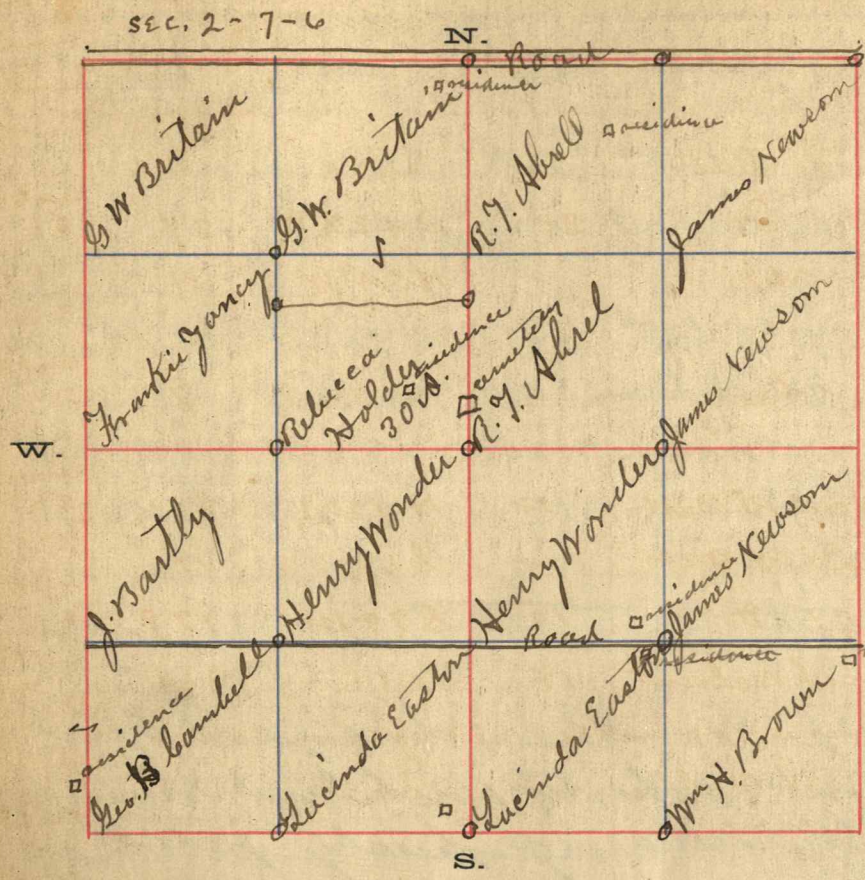 SEC. 2-7-6
N.
Road
residence
G W Britain
G. W. Britain
R. T. Ahrell
residence
James Newsom
Frankie Yancy
Rebecca
Holder
30 A.
residence
cemetery
R. T. Ahrel
James Newsom
W.
J. Bartly
Henry Wonder
Henry Wonder
residence
James Newsom
Road
residence
residence
Geo. B Cambell
Lucinda Easton
Lucinda Easton
Wm H. Brown
S.